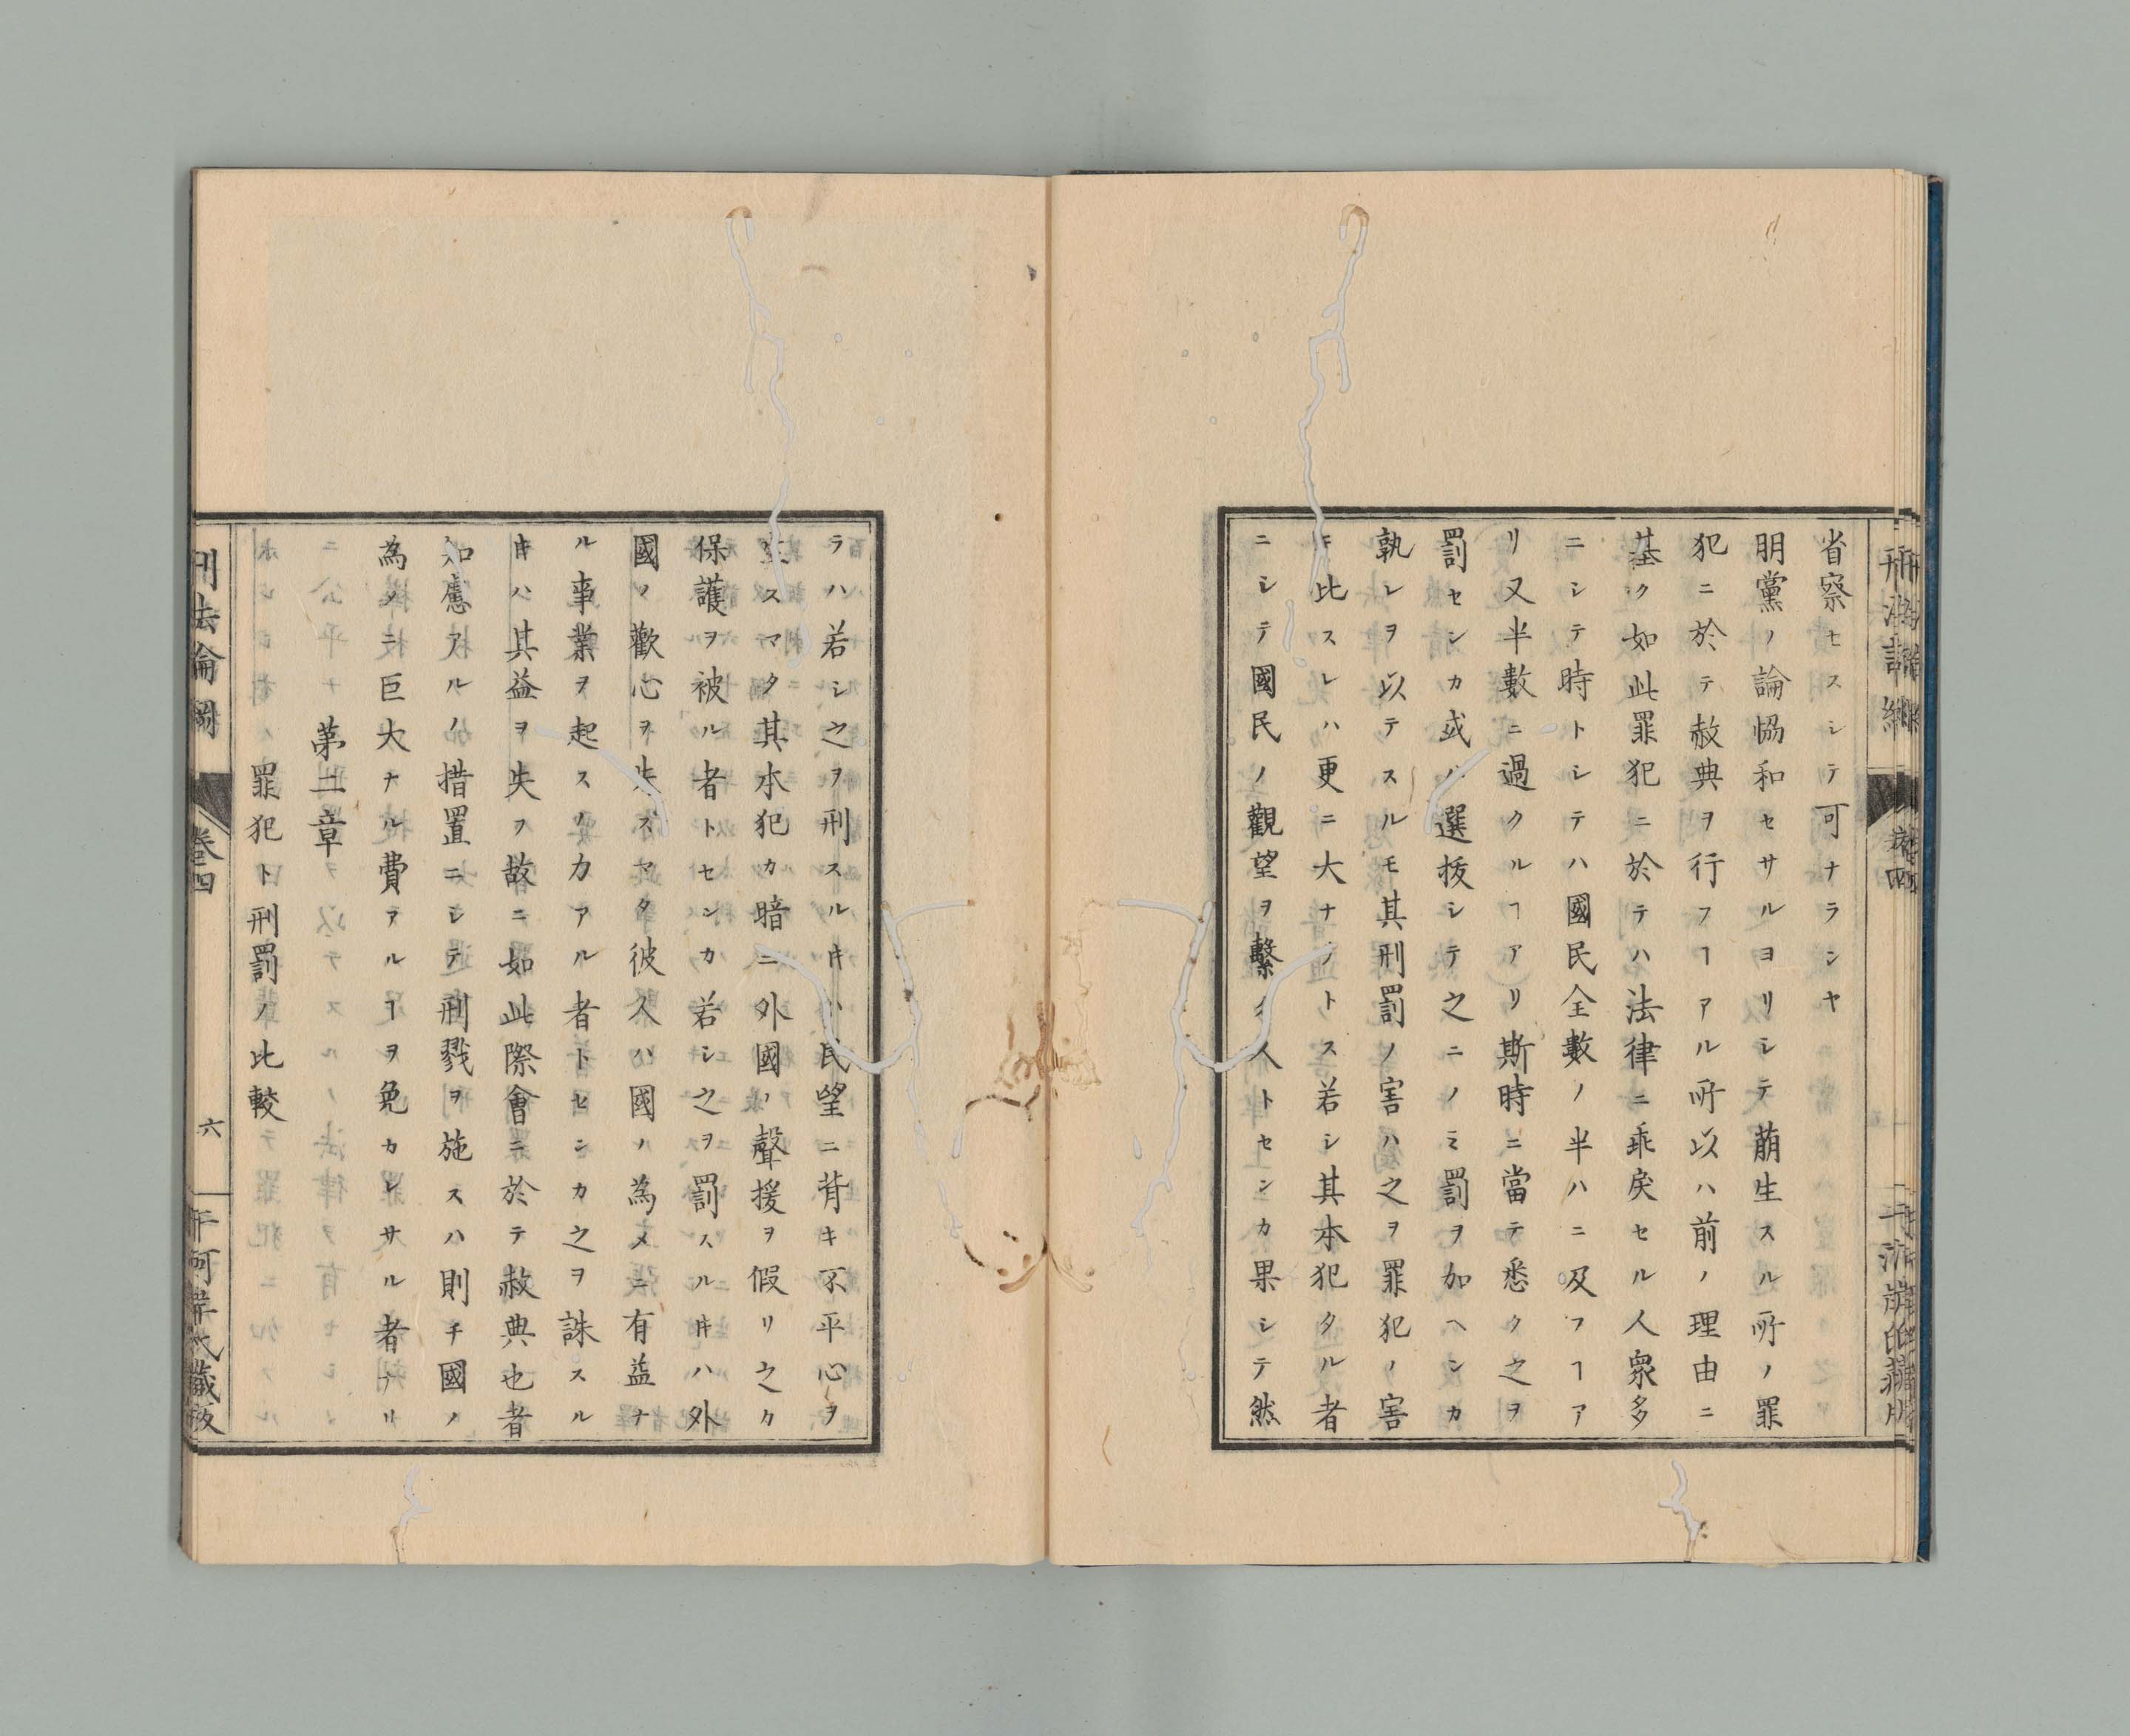 省察セスシテ可ナランヤ
朋黨ノ論恊和セサルヨリシテ萠生スル所ノ罪
犯ニ於テ赦典ヲ行フヿアル所以ハ前ノ理由ニ
基ク如此罪犯ニ於テハ法律ニ乖戾セル人衆多
ニシテ時トシテハ國民全數ノ半ハニ及フヿア
リ又半數ニ過クルヿアリ斯時ニ當テ悉ク之ヲ
罰センカ或ハ選抜シテ之ニノミ罰ヲ加ヘンカ
孰レヲ以テスルモ其刑罰ノ害ハ之ヲ罪犯ノ害
ニ比スレハ更ニ大ナノトス若シ其本犯タル者
ニシテ國民ノ觀望ヲ繫ク人トセンカ果シテ然
ラハ若シ之ヲ刑スル𪜈ハ民望ニ背キ不平心ヲ
生スマタ其本犯カ暗ニ外國ノ聲援ヲ假リ之カ
保護ヲ被ル者トセンカ若シ之ヲ罰スル𪜈ハ外
國ノ歡心ヲ失ス マタ彼人ハ國ノ為メニ有益ナ
ル事業ヲ起スノ力アル者トセンカ之ヲ誅スル
𪜈ハ其益ヲ失フ故ニ如此際會ニ於テ赦典也者
知慮アルノ措置ニシテ刑戮ヲ施スハ則チ國ノ
為メニ巨大ナル費アルヿヲ免カレサル者ナリ
第二章
罪犯ト刑罰ノ比較
刑法論綱
卷四
六
何岸氏藏板